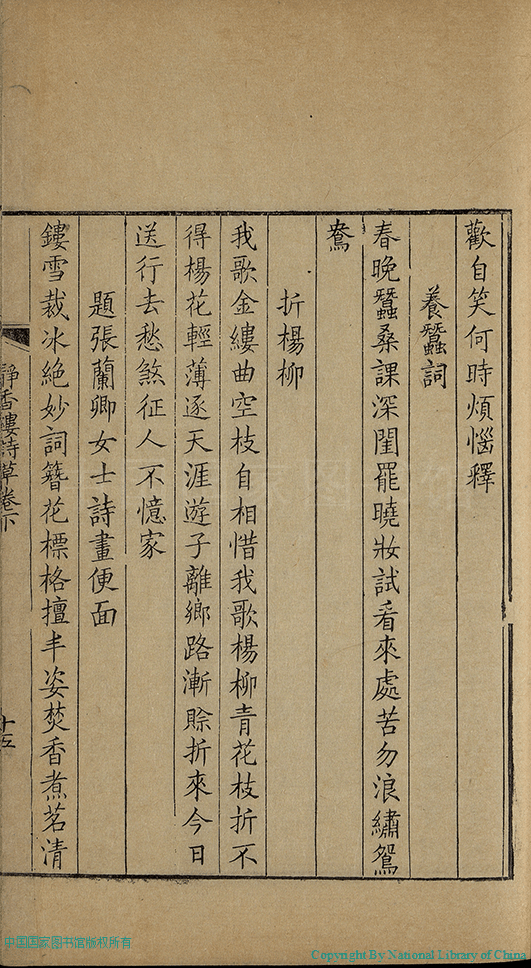 歡自笑何時煩惱釋
養蠶詞
春晚蠶桑課深閨罷曉妝試看來處苦勿浪繡鴛
鴦
折楊柳
我歌金縷曲空枝自相惜我歌楊柳青花枝折不
得楊花輕薄逐天涯遊子離鄉路漸賒折來今日
送行去愁煞征人不憶家
題張蘭卿女士詩畫便面
鏤雪裁冰絕妙詞簪花標格擅丰姿焚香煮茗清
靜香樓詩草卷下
十五
中国国家图书馆版权所有
Copyright By National Library of China